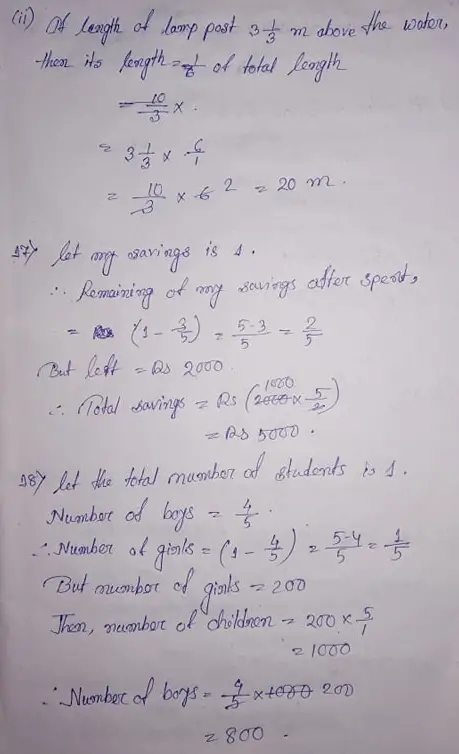 (ii) If length of lamp post 3 1/3 m above the water,
then its length = 1/6 of total length
= 10/3 x .
= 3 1/3 x 6/1
= 10/3 x 6 2 = 20 m .
17) let my savings is 1 .
∴ Remaining of my savings after spent,
= (1 - 3/5) = 5-3/5 = 2/5
But left = Rs 2000
∴ Total savings = Rs (1000 2000 x 5/2)
= Rs 5000 .
18) let the total number of students is 1 .
Number of boys = 4/5 .
∴ Number of girls = (1 - 4/5) = 5-4/5 = 1/5
But number of girls = 200
Then, number of children = 200 x 5/1
= 1000
∴ Number of boys = 4/5 x 1000 200
= 800 .